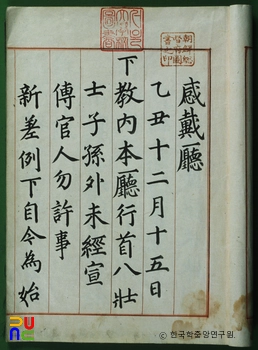 感戴廳
乙丑十二月十五日
下敎內本廳行首八壯
士子孫外未經宣
傳官人勿許事
新差例下自今為始
PUNC
© 한국학중앙연구원